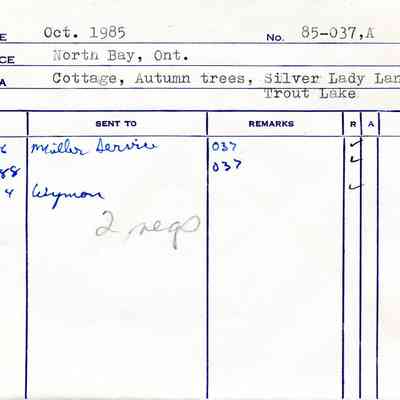 E Oct. 1985 No. 85-037,A
CE North Bay, Ont.
A Cottage, Autumn trees, Silver Lady Lan
Trout Lake
SENT TO REMARKS R A
6 Miller Service 037 ✓
88 037 ✓
4 Wymon ✓
2 negs